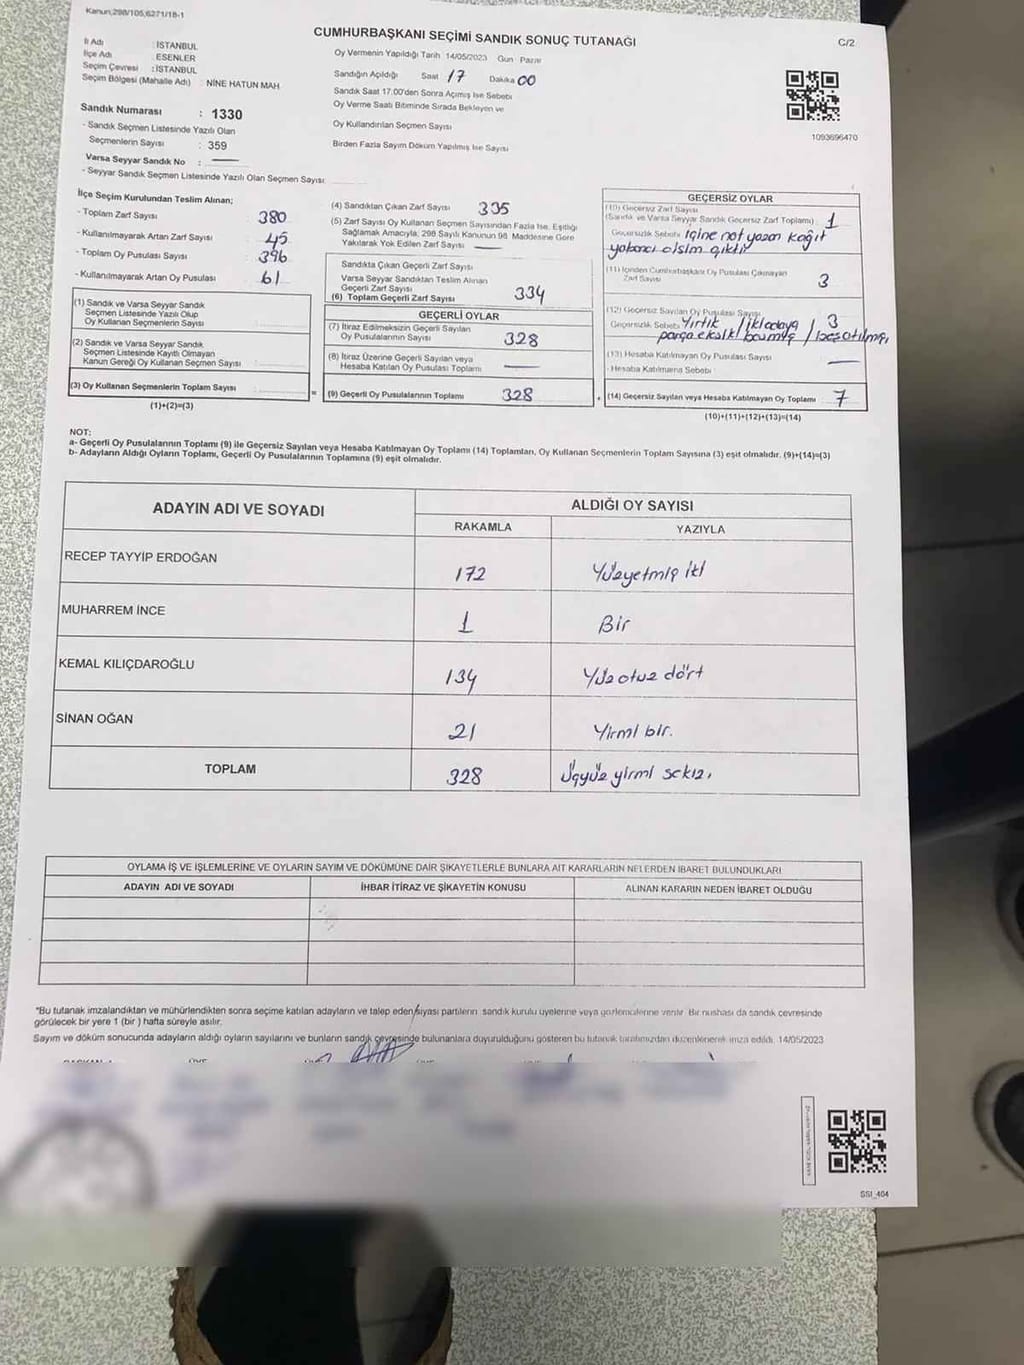 Kanun;298/105,6271/18-1
CUMHURBAŞKANI SEÇİMİ SANDIK SONUÇ TUTANAĞI
C/2
İl Adı : İSTANBUL
İlçe Adı : ESENLER
Seçim Çevresi : İSTANBUL
Seçim Bölgesi (Mahalle Adı) : NİNE HATUN MAH
Sandık Numarası : 1330
- Sandık Seçmen Listesinde Yazılı Olan
Seçmenlerin Sayısı : 359
Varsa Seyyar Sandık No :
- Seyyar Sandık Seçmen Listesinde Yazılı Olan Seçmen Sayısı:
Oy Vermenin Yapıldığı Tarih 14/05/2023 Gün Pazar
Sandığın Açıldığı Saat 17 Dakika 00
Sandık Saat 17.00'den Sonra Açımış İse Sebebi
Oy Verme Saati Bitiminde Sırada Bekleyen ve
Oy Kullandırılan Seçmen Sayısı
Birden Fazla Sayım Döküm Yapılmış İse Sayısı
1093696470
İlçe Seçim Kurulundan Teslim Alınan;
- Toplam Zarf Sayısı 380
- Kullanılmayarak Artan Zarf Sayısı 45
- Toplam Oy Pusulası Sayısı 396
- Kullanılmayarak Artan Oy Pusulası 61
(1) Sandık ve Varsa Seyyar Sandık
Seçmen Listesinde Yazılı Olup
Oy Kullanan Seçmenlerin Sayısı
(2) Sandık ve Varsa Seyyar Sandık
Seçmen Listesinde Kayıtlı Olmayan
Kanun Gereği Oy Kullanan Seçmen Sayısı
(3) Oy Kullanan Seçmenlerin Toplam Sayısı
(1)+(2)=(3)
(4) Sandıktan Çıkan Zarf Sayısı 335
(5) Zarf Sayısı Oy Kullanan Seçmen Sayısından Fazla İse, Eşitliği
Sağlamak Amacıyla; 298 Sayılı Kanunun 98. Maddesine Göre
Yakılarak Yok Edilen Zarf Sayısı
Sandıkta Çıkan Geçerli Zarf Sayısı
Varsa Seyyar Sandıktan Teslim Alınan
Geçerli Zarf Sayısı
(6) Toplam Geçerli Zarf Sayısı 334
GEÇERLİ OYLAR
(7) İtiraz Edilmeksizin Geçerli Sayılan
Oy Pusulalarının Sayısı 328
(8) İtiraz Üzerine Geçerli Sayılan veya
Hesaba Katılan Oy Pusulası Toplamı
= (9) Geçerli Oy Pusulalarının Toplamı 328
GEÇERSİZ OYLAR
(10) Geçersiz Zarf Sayısı
(Sandık ve Varsa Seyyar Sandık Geçersiz Zarf Toplamı) 1
Geçersizlik Sebebi içine not yazan kağıt
yabancı cisim çıktı
(11) İçinden Cumhurbaşkanı Oy Pusulası Çıkmayan
Zarf Sayısı 3
(12) Geçersiz Sayılan Oy Pusulası Sayısı 3
Geçersizlik Sebebi Yırtık / iki adaya /
parça eksik basmış boş atılmış
(13) Hesaba Katılmayan Oy Pusulası Sayısı
- Hesaba Katılmama Sebebi
+ (14) Geçersiz Sayılan veya Hesaba Katılmayan Oy Toplamı 7
(10)+(11)+(12)+(13)=(14)
NOT:
a- Geçerli Oy Pusulalarının Toplamı (9) ile Geçersiz Sayılan veya Hesaba Katılmayan Oy Toplamı (14) Toplamları, Oy Kullanan Seçmenlerin Toplam Sayısına (3) eşit olmalıdır. (9)+(14)=(3)
b- Adayların Aldığı Oyların Toplamı, Geçerli Oy Pusulalarının Toplamına (9) eşit olmalıdır.
ADAYIN ADI VE SOYADI
ALDIĞI OY SAYISI
RAKAMLA YAZIYLA
RECEP TAYYİP ERDOĞAN 172 Yüzyetmiş iki
MUHARREM İNCE 1 Bir
KEMAL KILIÇDAROĞLU 134 Yüz otuz dört
SİNAN OĞAN 21 Yirmi bir.
TOPLAM 328 Üçyüz yirmi sekiz.
OYLAMA İŞ VE İŞLEMLERİNE VE OYLARIN SAYIM VE DÖKÜMÜNE DAİR ŞİKAYETLERLE BUNLARA AİT KARARLARIN NELERDEN İBARET BULUNDUKLARI
ADAYIN ADI VE SOYADI İHBAR İTİRAZ VE ŞİKAYETİN KONUSU ALINAN KARARIN NEDEN İBARET OLDUĞU
*Bu tutanak imzalandıktan ve mühürlendikten sonra seçime katılan adayların ve talep eden siyasi partilerin sandık kurulu üyelerine veya gözlemcilerine verilir. Bir nüshası da sandık çevresinde
görülecek bir yere 1 (bir) hafta süreyle asılır.
Sayım ve döküm sonucunda adayların aldığı oyların sayılarını ve bunların sandık çevresinde bulunanlara duyurulduğunu gösteren bu tutanak tarafımızdan düzenlenerek imza edildi. 14/05/2023
SSI_404